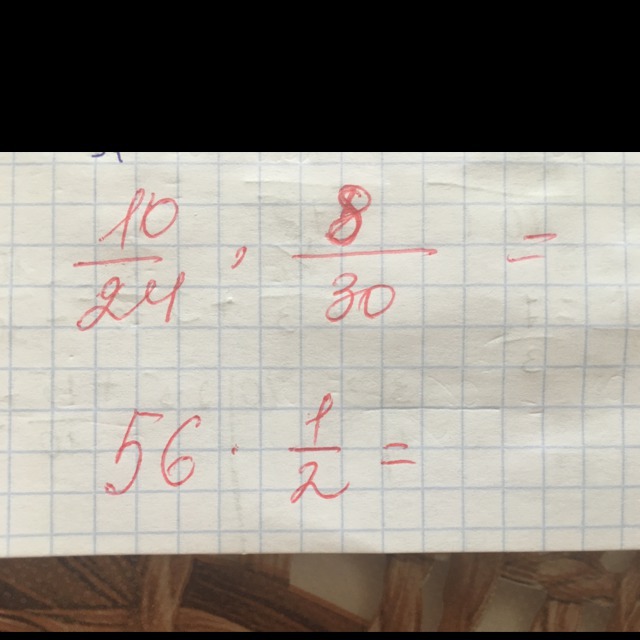 10/24 · 8/30 =
56 · 1/2 =